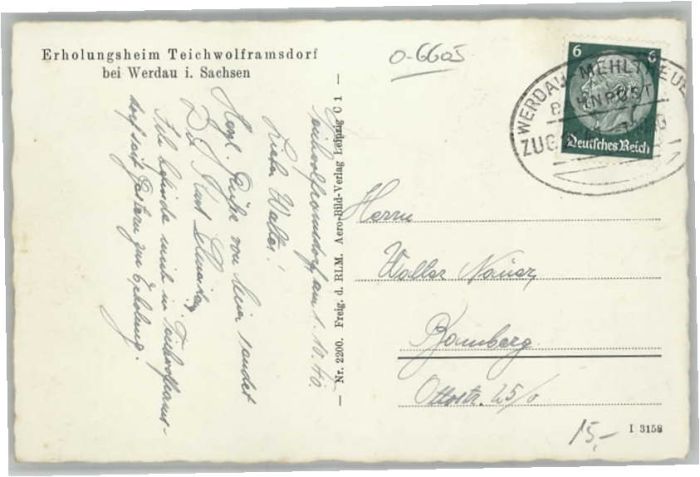 Erholungsheim Teichwolframsdorf
bei Werdau i. Sachsen
0-6605
6 6
Deutsches Reich
WERDAU-MEHLTHEUER
BAHNPOST
ZUG
Teichwolframsdorf, am 1.10.40.
Lieber Walter!
Herzl. Grüße von hier sendet
Dir Kurt
Ich befinde mich in Teichwolframs-
dorf seit gestern zur Erholung.
Nr. 2200. Freig. d. RLM. Aero-Bild-Verlag Leipzig C 1
Herrn
Walter
Bamberg.
Ottostr. 25/0
15,-
I 3158